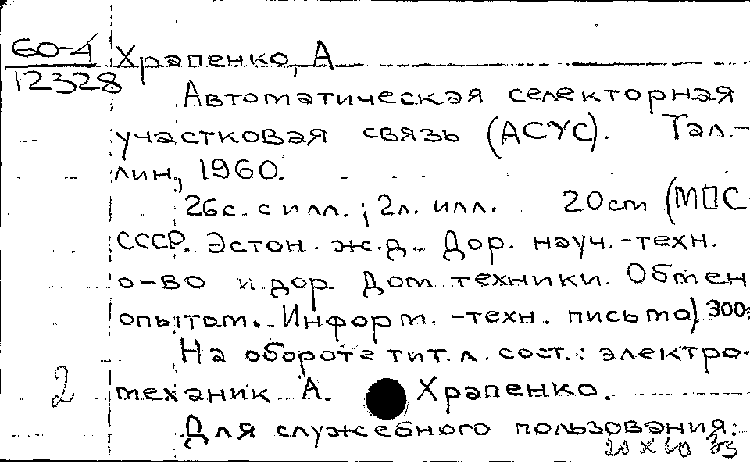 60-4
12328
Храпенко, А
Автоматическая селекторная
участковая связь (АСУС). Тал-
лин, 1960.
26с. с илл.; 2л. илл. 20см (МПС
СССР. Эстон. ж.д. Дор. науч.-техн.
о-во и дор. Дом техники. Обмен
опытом. Информ.-техн. письмо) 300э
На обороте тит. л. сост.: электро-
2 механик А. Храпенко.
Для служебного пользования.